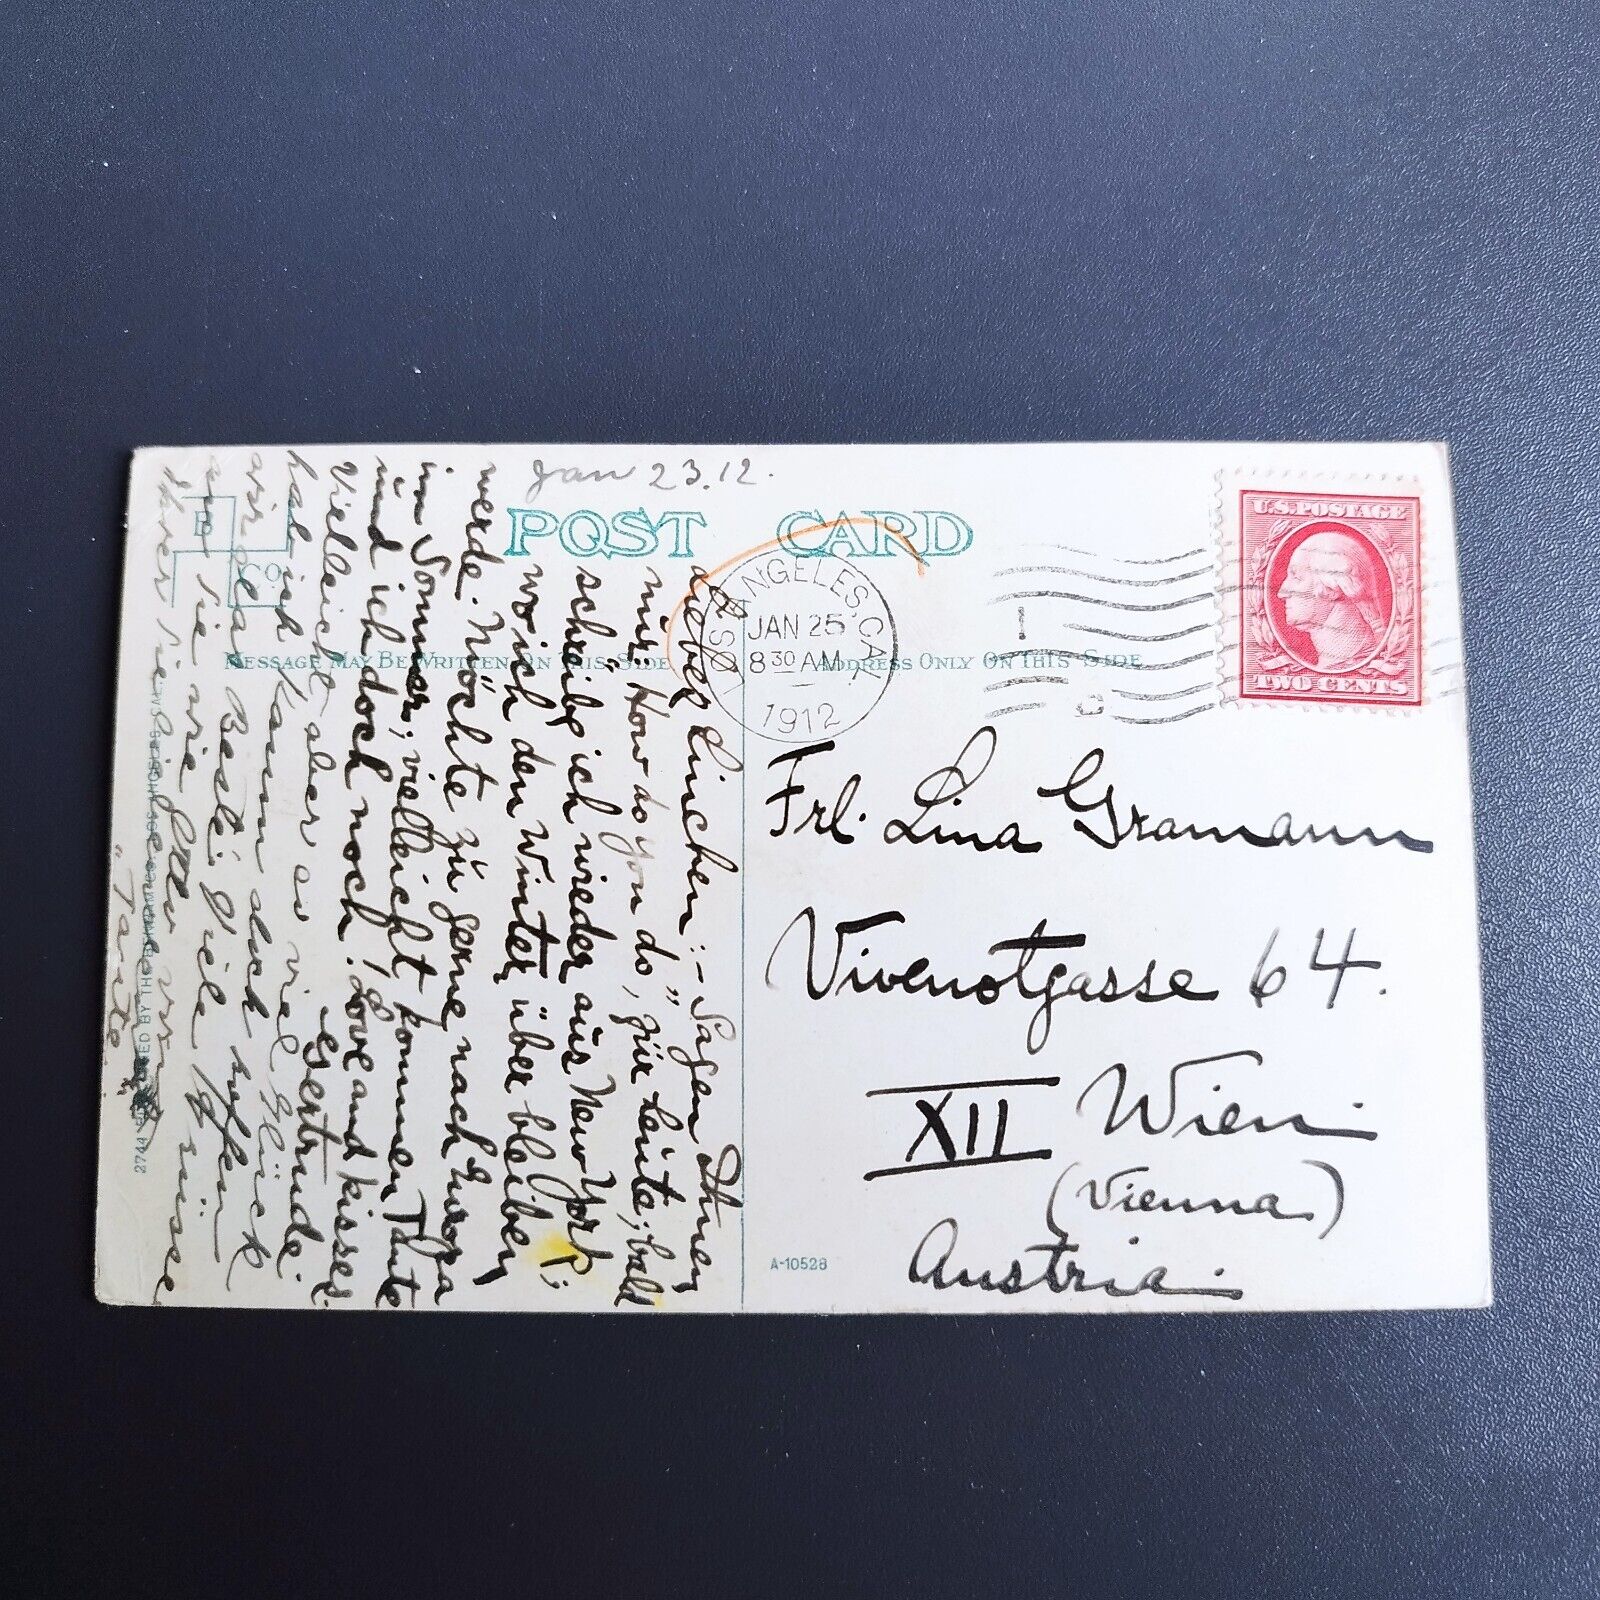 Jan 23.12.
POST CARD
MESSAGE MAY BE WRITTEN ON THIS SIDE
ADDRESS ONLY ON THIS SIDE
LOS ANGELES, CAL.
JAN 25
8 30 AM
1912
U.S. POSTAGE
TWO CENTS
Frl. Lina Gramann
Vivenotgasse 64.
XII Wien.
(Vienna)
Austria.
A-10528
Liebes Linchen:- Sagen Ihnen
nur: "How do you do", für heute; bald
schreibe ich wieder aus New York;
wo ich den Winter über bleiben
werde. Möchte zu gerne nach Europa
im Sommer; vielleicht kommen Tante
und ich doch noch! Love and kisses.
Gertrude.
Vielleicht aber so viel Glück
hab ich kaum doch hoffen
wir das Beste! Viele Grüsse
"Tante"